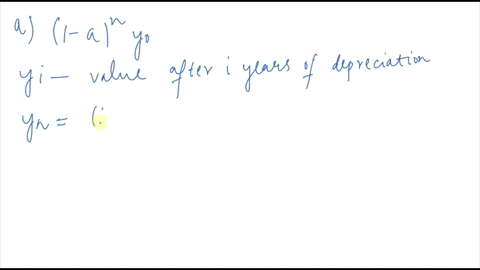 a) (1-a)^n y₀
yi — value after i years of depreciation
yn = (